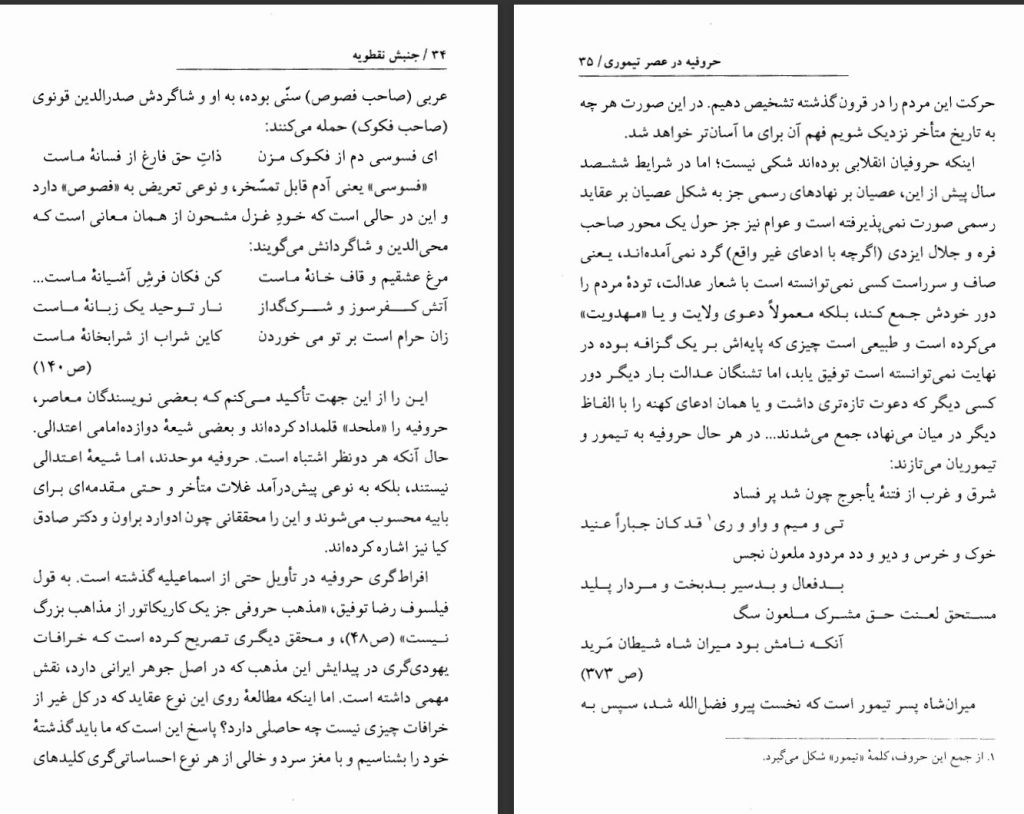 ۳۴ / جنبش نقطویه
عربی (صاحب فصوص) سنّی بوده، به او و شاگردش صدرالدین قونوی
(صاحب فکوک) حمله می‌کنند:
ای فسوسی دم از فکـوک مـزن ذاتِ حق فارغ از فسانهٔ مـاست
«فسوسی» یعنی آدم قابل تمسّخر، و نوعی تعریض به «فصوص» دارد
و این در حالی است که خـودِ غـزل مشـحون از همـان معـانی اسـت کـه
محی‌الدین و شاگردانش می‌گویند:
مرغ عشقیم و قاف خـانهٔ مـاست کن فکان فرشِ آشـیانهٔ مـاست...
آتش کـــفرسوز و شـــرک‌گداز نـار تـوحید یک زبـانهٔ مـاست
زان حرام است بر تو می خوردن کاین شراب از شرابخانهٔ مـاست
(ص ۱۴۰)
ایـن را از این جهت تأکـید مـی‌کنم کـه بـعضی نـویسندگان مـعاصر،
حروفیه را «ملحد» قلمداد کرده‌اند و بعضی شیعهٔ دوازده‌امامی اعتدالی.
حال آنکه هر دونظر اشتباه است. حروفیه موحدند، امـا شـیعهٔ اعـتدالی
نیستند، بلکه به نوعی پیش‌درآمد غلات متأخر و حتـی مـقدمه‌ای بـرای
بابیه محسوب می‌شوند و این را محققانی چون ادوارد براون و دکتر صادق
کیا نیز اشاره کرده‌اند.
افراط‌گری حروفیه در تأویل حتی از اسماعیلیه گذشته است. به قول
فیلسوف رضا توفیق، «مذهب حروفی جز یک کاریکاتور از مذاهب بزرگ
نـیست» (ص۴۸)، و محقق دیگـری تـصریح کـرده است کـه خـرافـات
یهودی‌گری در پیدایش این مذهب که در اصل جوهر ایرانی دارد، نقش
مهمی داشته است. اما اینکه مطالعهٔ روی این نوع عقاید که درکل غیر از
خرافات چیزی نیست چه حاصلی دارد؟ پاسخ این است که ما باید گذشتهٔ
خود را بشناسیم و با مغز سرد و خالی از هر نوع احساساتی‌گری کلیدهای
حروفیه در عصر تیموری / ۳۵
حرکت این مردم را در قرون گذشته تشخیص دهیم. در این صورت هر چه
به تاریخ متأخر نزدیک شویم فهم آن برای ما آسان‌تر خواهد شد.
اینکه حروفیان انقلابی بوده‌اند شکی نیست؛ اما در شرایط ششـصد
سال پیش از این، عصیان بر نهادهای رسمی جز به شکل عصیان بر عقاید
رسمی صورت نمی‌پذیرفته است و عوام نیز جز حول یک محور صاحب
فره و جلال ایزدی (اگرچه با ادعای غیر واقع) گرد نمی‌آمده‌انـد، یـعنی
صاف و سرراست کسی نمی‌توانسته است با شعار عدالت، تودهٔ مردم را
دور خودش جـمع کـند، بـلکه مـعمولاً دعـوی ولایت و یـا «مـهدویت»
می‌کرده است و طبیعی است چیزی که پایه‌اش بـر یک گـزافـه بـوده در
نهایت نمی‌توانسته است توفیق یابد، اما تشنگان عـدالت بـار دیگـر دور
کسی دیگر که دعوت تازه‌تری داشت و یا همان ادعای کهنه را با الفـاظ
دیگر در میان می‌نهاد، جمع می‌شدند... در هر حال حروفیه به تـیمور و
تیموریان می‌تازند:
شرق و غرب از فتنهٔ یأجوج چون شد پر فساد
تـی و مـیم و واو و ری۱ قـد کـان جـباراً عـنید
خوک و خرس و دیو و دد مردود ملعون نجس
بـدفعال و بـدسیر بـدبخت و مـردار پـلید
مسـتحق لعـنت حـق مشـرک مـلعون سگ
آنکـه نـامش بـود مـیران شـاه شـیطان مَـرید
(ص ۳۷۳)
میران‌شاه پسر تیمور است که نخست پیرو فضل‌الله شـد، سـپس بـه
۱. از جمع این حروف، کلمهٔ «تیمور» شکل می‌گیرد.